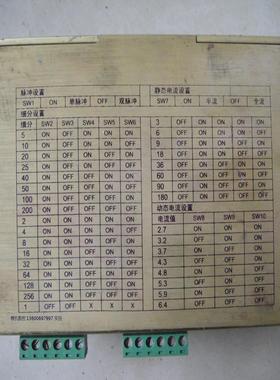 脉冲设置
SW1 ON 单脉冲 OFF 双脉冲
细分设置
细分 SW2 SW3 SW4 SW5 SW6
5 ON OFF ON ON ON
10 ON OFF ON ON OFF
20 ON OFF ON OFF ON
25 ON OFF ON OFF OFF
40 ON OFF OFF ON ON
50 ON OFF OFF ON OFF
100 ON OFF OFF OFF ON
200 ON OFF OFF OFF OFF
2 ON ON ON ON ON
4 ON ON ON ON OFF
8 ON ON ON OFF ON
16 ON ON ON OFF OFF
32 ON ON OFF ON ON
64 ON ON OFF ON OFF
128 ON ON OFF OFF ON
256 ON ON OFF OFF OFF
1 OFF OFF X X X
静态电流设置
SW7 ON 半流 OFF 全流
3 OFF ON ON ON ON
6 OFF ON ON ON OFF
9 OFF ON ON OFF ON
18 OFF ON ON OFF OFF
36 OFF ON OFF ON ON
60 OFF ON OFF ON OFF
90 OFF ON OFF OFF ON
180 OFF ON OFF OFF OFF
动态电流设置
电流值 SW8 SW9 SW10
2.7 ON ON ON
3.2 OFF ON ON
3.7 ON OFF ON
4.3 OFF OFF ON
4.8 ON ON OFF
5.3 OFF ON OFF
5.9 ON OFF OFF
6.4 OFF OFF OFF